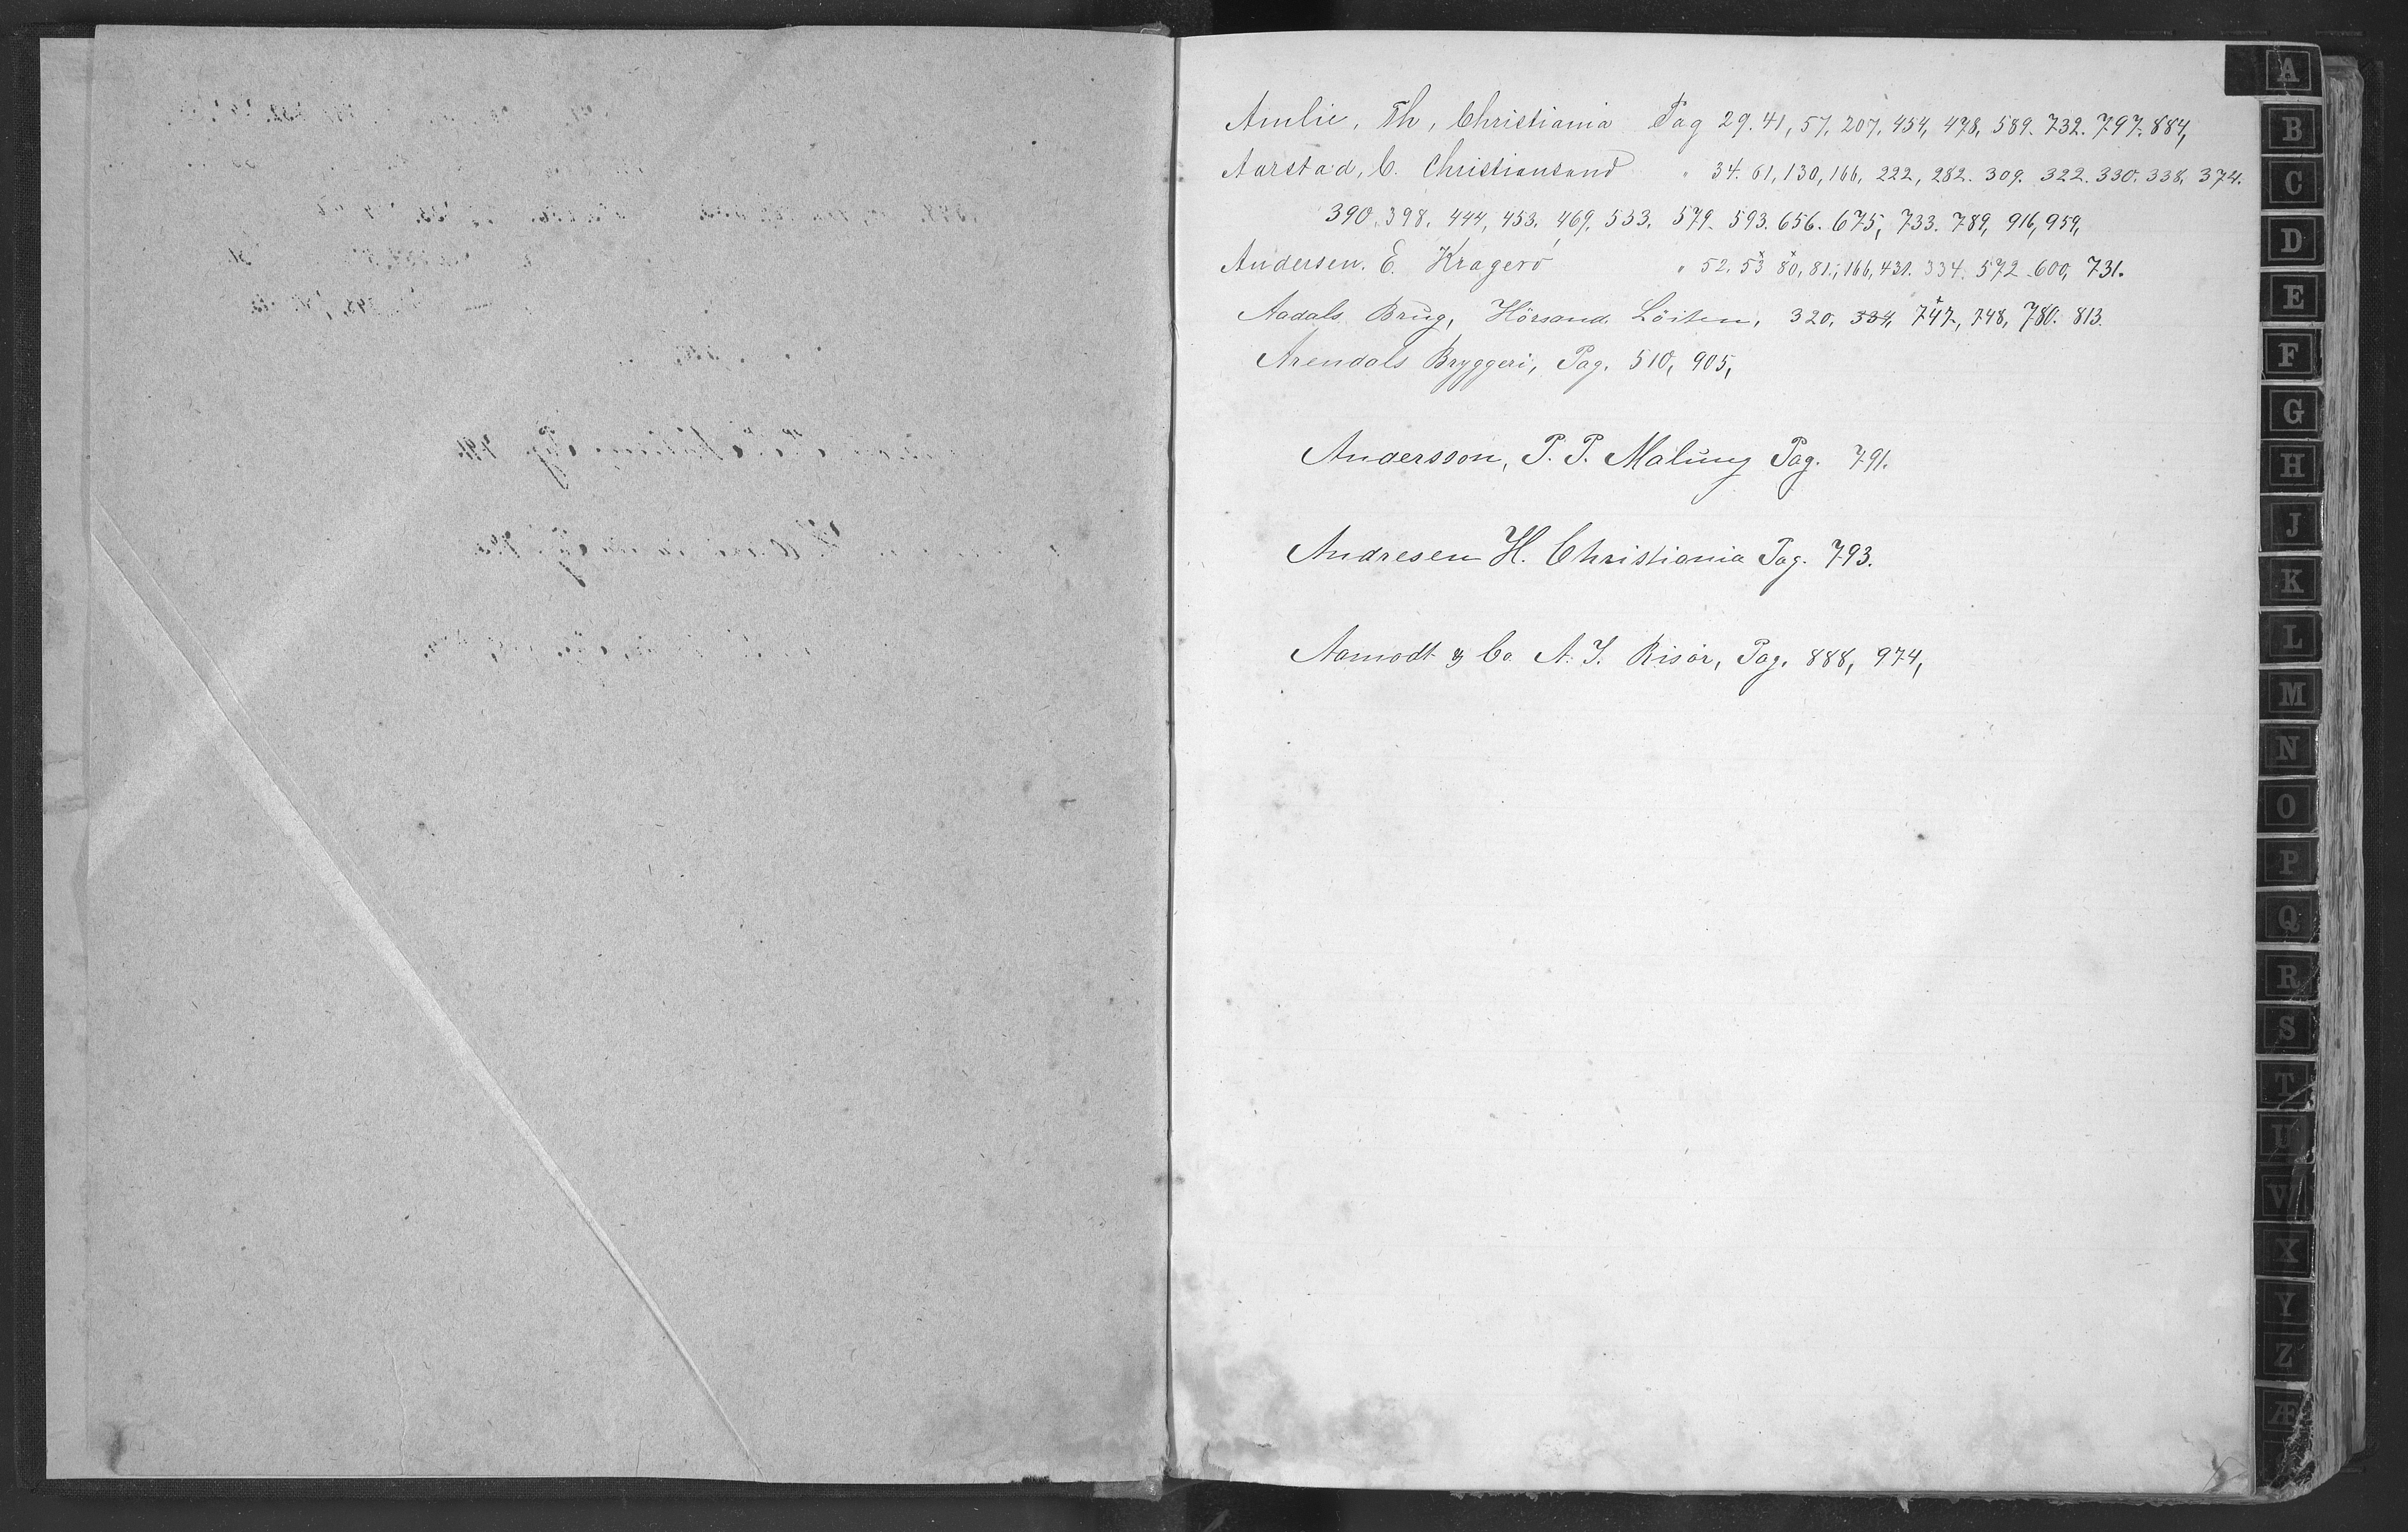 Amlie, Th, Christiania Pag 29. 41, 57, 207, 454, 478, 589. 732. 797. 884,
Aarstad, C. Christiansand " 34. 61, 130, 166, 222, 282. 309. 322. 330. 338, 374.
390. 398. 444, 453. 469. 533. 579. 593. 656. 675, 733. 789, 916, 959,
Andersen. E. Kragerö " 52. 53 80, 81, 166, 431. 334. 572. 600, 731.
Aadals Brug, Hörsand Löiten, 320, 334, 747, 748, 780. 813.
Arendals Bryggeri, Pag. 510, 905,
Andersson, P. P. Malung Pag. 791.
Andresen H. Christiania Pag. 793.
Aamodt & Co A. J. Risör, Pag. 888, 974,
A
B
C
D
E
F
G
H
J
K
L
M
N
O
P
Q
R
S
T
U
V
X
Y
Z
Æ